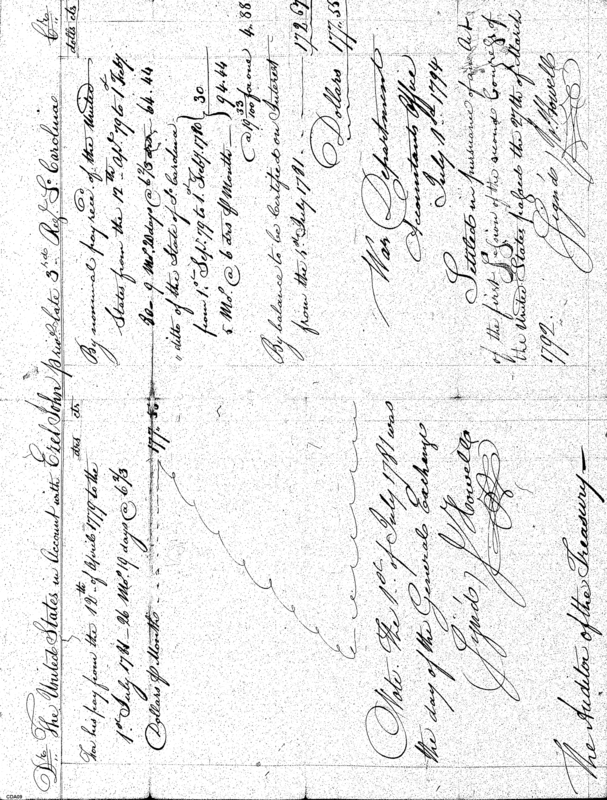 Dr. The United States in Account with Ezel John priv. late 3rd Reg. So. Carolina Cr.
drs cts
For his pay from the 12th of April 1779 to the
1st July 1781 - 26 Mo. 19 days @ 6 2/3
Dollars p Month - - - 177.55
Note. The 1st of July 1781 was
the day of the General Exchange
Signed, J Howell
The Auditor of the Treasury -
dolls cts
By nominal pay rec.d of the United
States from the 12th Apl. 79 to 1st Feby
80 - 9 Mo. 20 days @ 6 2/3 drs 64.44
ditto of the State of So. Carolina
from 1st Sept. 79 to 1st Feby 1780
5 Mo. @ 6 drs p Month - 30
94.44
@ 19 33/100 for one 4.88
By balance to be Certified on Interest
from the 1st July 1781 - - - 172.67
Dollars 177.55
War Department
Accountants Office
July 1st 1794
Settled in pursuance of an Act
of the first Session of the second Congress of
the United States passed the 27th of March
1792.
Signed J Howell
CDA09